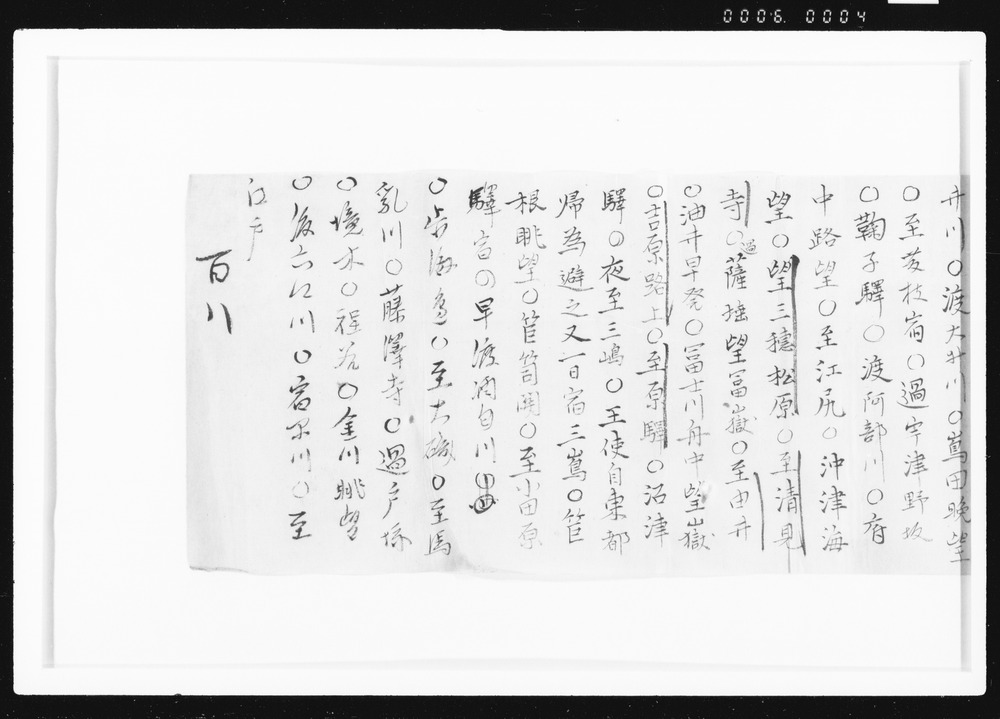 0006. 0004
井川○渡大井川○嶌田晩望
○至藤枝宿○過宇津野坂
○鞠子驛○渡阿部川○府
中路望○至江尻○沖津海
望○望三穂松原○至清見
寺○過薩埵望冨嶽○至由井
○油井早発○冨士川舟中望嶽
○吉原路上○至原驛○沼津
驛○夜至三嶋○王使自東都
帰為避之又一日宿三嶌○筥
根眺望○筥根関○至小田原
驛宿○早渡酒匂川
○歩海邉○至大磯○至馬
乳川○藤澤寺○過戸塚
○境木○程谷○金川眺望
○渡六江川○宿品川○至
江戸
百川